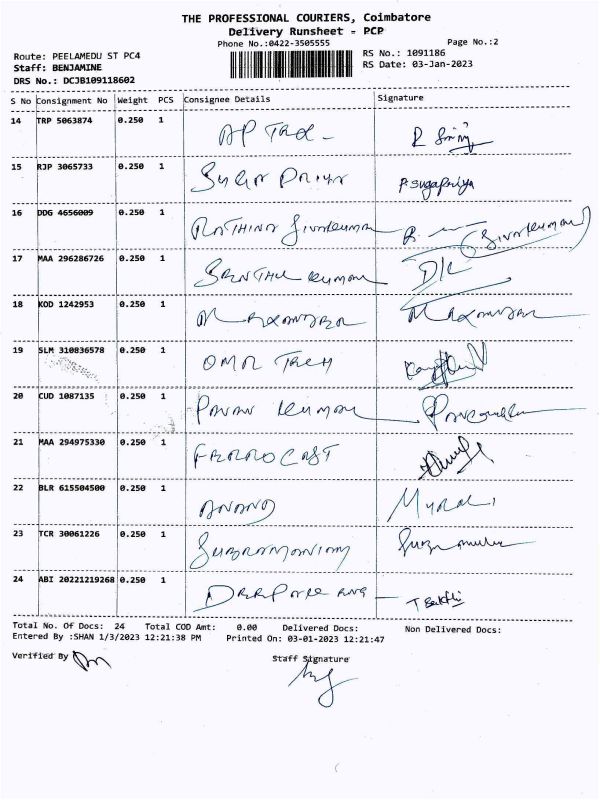 THE PROFESSIONAL COURIERS, Coimbatore
Delivery Runsheet - PCP
Phone No.:0422-3505555
Page No.:2
Route: PEELAMEDU ST PC4
RS No.: 1091186
Staff: BENJAMINE
RS Date: 03-Jan-2023
DRS No.: DCJB109118602
S No Consignment No Weight PCS Consignee Details Signature
14 TRP 5063874 0.250 1 AP
15 RJP 3065733 0.250 1 Suga Priya P. Sugapriya
16 DDG 4656009 0.250 1 Rathina Sivakumar R. (Sivakumar)
17 MAA 296286726 0.250 1 Senthil Kumar
18 KOD 1242953 0.250 1
19 SLM 310836578 0.250 1 OMR TECH
20 CUD 1087135 0.250 1 Pavan Kumar
21 MAA 294975330 0.250 1 FERRO CAST
22 BLR 615504500 0.250 1 ANAND Murali
23 TCR 30061226 0.250 1 Subramaniam
24 ABI 20221219268 0.250 1
Total No. Of Docs: 24 Total COD Amt: 0.00 Delivered Docs: Non Delivered Docs:
Entered By :SHAN 1/3/2023 12:21:38 PM Printed On: 03-01-2023 12:21:47
Verified By
Staff Signature